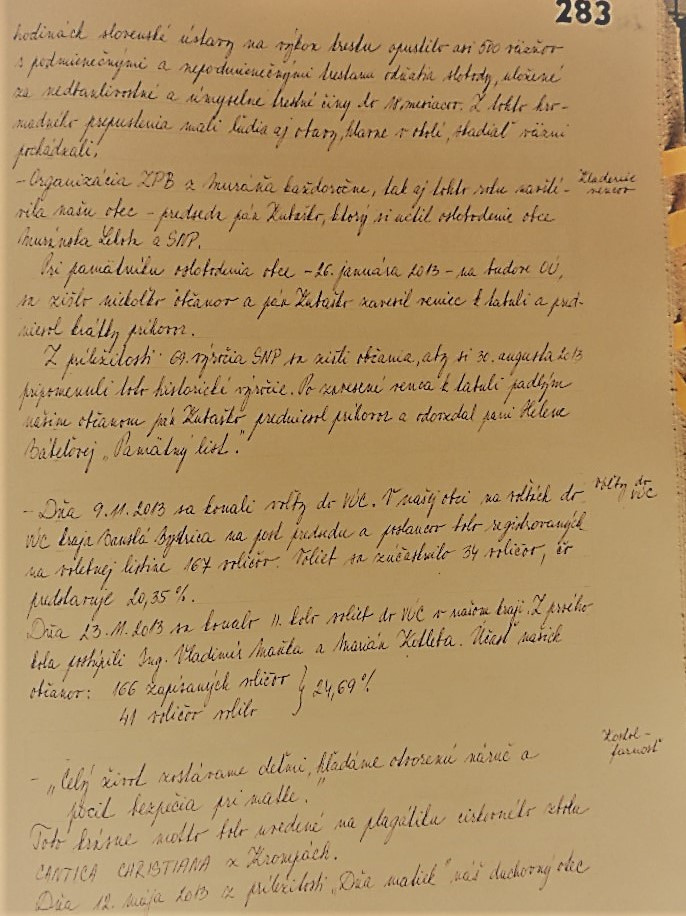 283
hodinách slovenské ústavy na výkon trestu opustilo asi 500 väzňov
s podmienečnými a nepodmienečnými trestami odňatia slobody, uložené
za nedbanlivostné a úmyselné trestné činy do 18 mesiacov. Z tohto hro-
madného prepustenia mali ľudia aj obavy, hlavne v okolí, skadiaľ väzni
pochádzali.
- Organizácia ZPB z Muráňa každoročne, tak aj tohto roku navští-
Kladenie
vencov
vila našu obec - predseda pán Kubaško, ktorý si uctil oslobodenie obce
Muránska Lehota a SNP.
Pri pamätníku oslobodenia obce - 26. januára 2013 - na budove OÚ,
sa zišlo niekoľko občanov a pán Kubaško zavesil veniec k tabuli a pred-
niesol krátky príhovor.
Z príležitosti 69. výročia SNP sa zišli občania, aby si 30. augusta 2013
pripomenuli toto historické výročie. Po zavesené venca k tabuli padlým
našim občanom pán Kubaško predniesol príhovor a odovzdal pani Helene
"Pamätný list."
- Dňa 9.11.2013 sa konali voľby do VÚC. V našej obci na voľbách do
Voľby do
VÚC
VÚC kraja Banská Bystrica na post predsedu a poslancov bolo registrovaných
na volebnej listine 167 voličov. Volieb sa zúčastnilo 34 voličov, čo
predstavuje 20,35 %.
Dňa 23.11.2013 sa konalo II. kolo volieb do VÚC v našom kraji. Z prvého
kola postúpili Ing. Vladimír Maňka a Marián Kotleba. Účasť našich
občanov: 166 zapísaných voličov } 24,69 %
41 voličov volilo
Kostol -
farnosť
- "Celý život zostávame deťmi, hľadáme otvorenú náruč a
pocit bezpečia pri matke."
Toto krásne motto bolo uvedené na plagátiku cirkevného zboru
CANTICA CHRISTIANA z Krompách.
Dňa 12. mája 2013 z príležitosti "Dňa matiek" náš duchovný otec